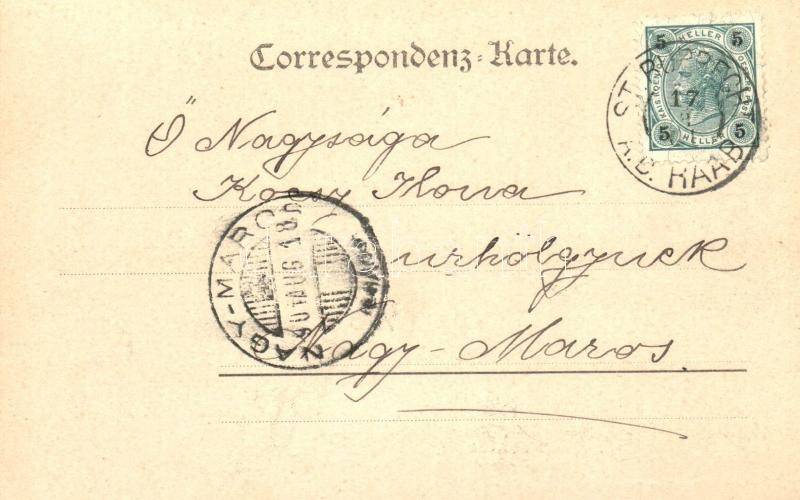 Correspondenz-Karte.
5 HELLER 5
5 HELLER 5
ST. RUPRECHT
17
A.D. RAAB
Ő Nagysága
Ilona
urhölgynek
Nagy-Maros.
NAGY-MAROS
901 AUG 18